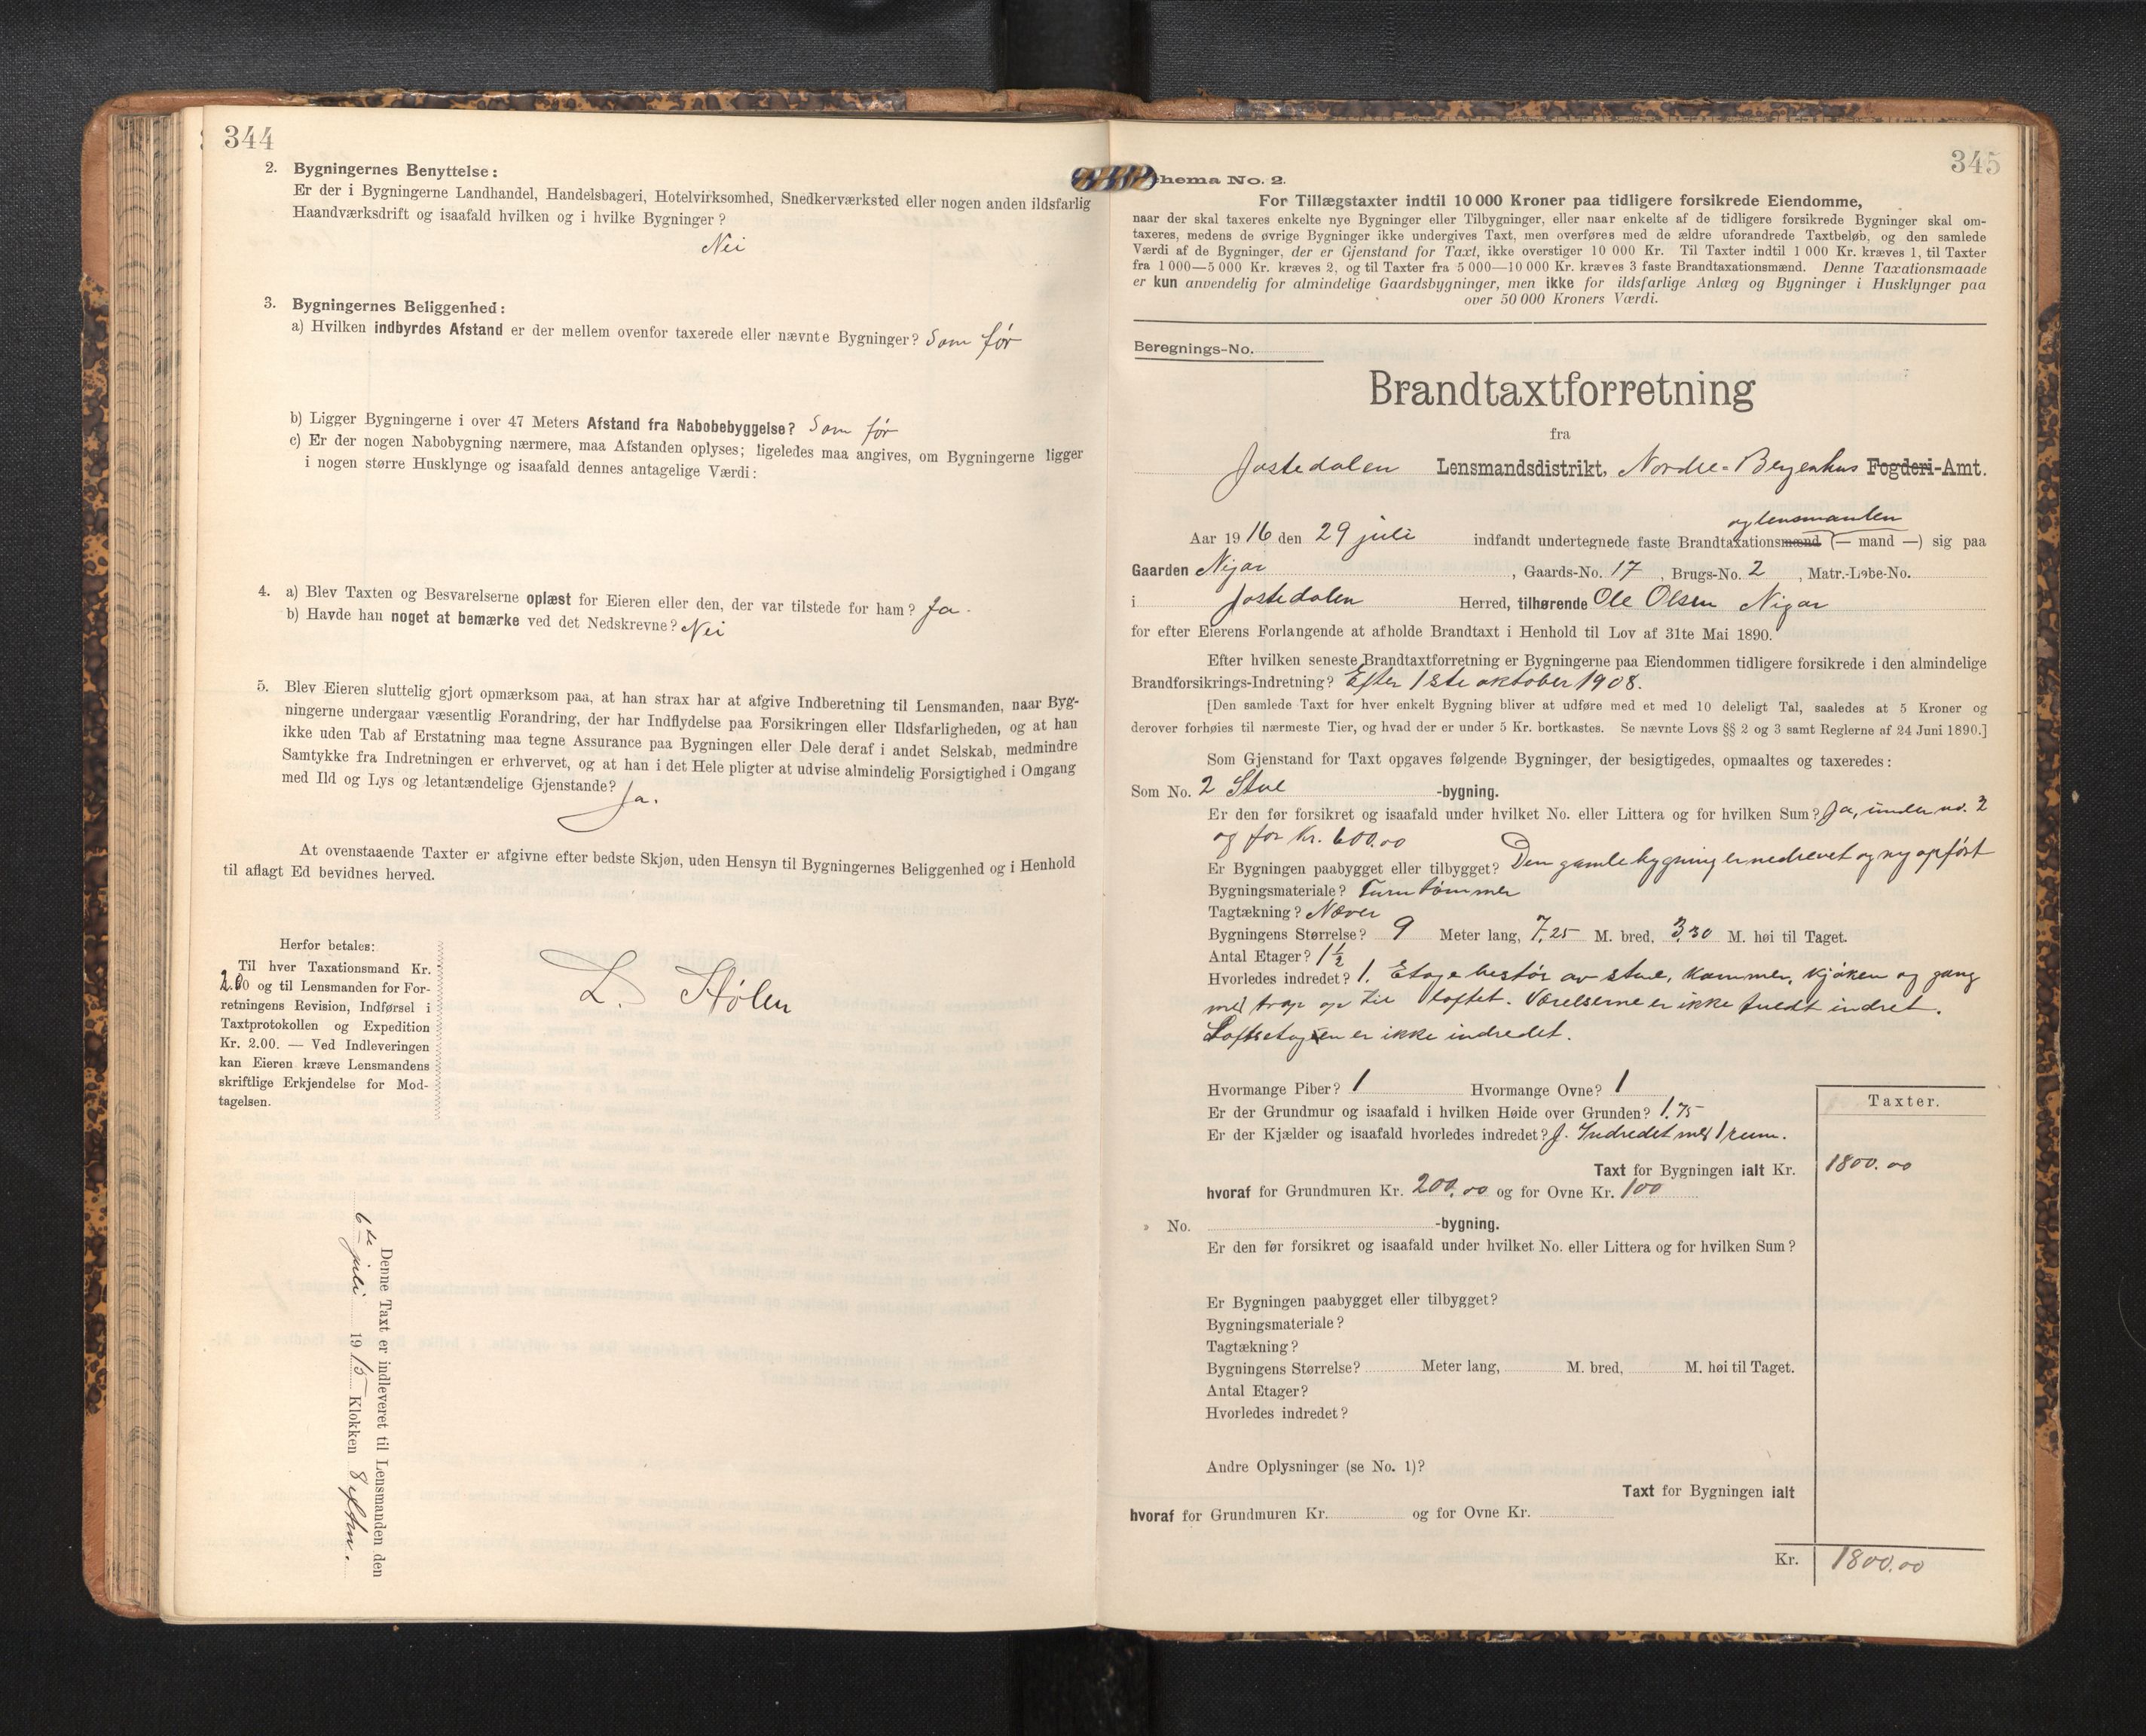 344
2. Bygningernes Benyttelse:
Er der i Bygningerne Landhandel, Handelsbageri, Hotelvirksomhed, Snedkerværksted eller nogen anden ildsfarlig
Haandværksdrift og isaafald hvilken og i hvilke Bygninger?
Nei
3. Bygningernes Beliggenhed:
a) Hvilken indbyrdes Afstand er der mellem ovenfor taxerede eller nævnte Bygninger? Som før
b) Ligger Bygningerne i over 47 Meters Afstand fra Nabobebyggelse? Som før
c) Er der nogen Nabobygning nærmere, maa Afstanden oplyses; ligeledes maa angives, om Bygningerne ligger
i nogen større Husklynge og isaafald dennes antagelige Værdi:
4. a) Blev Taxten og Besvarelserne oplæst for Eieren eller den, der var tilstede for ham? Ja.
b) Havde han noget at bemærke ved det Nedskrevne? Nei
5. Blev Eieren sluttelig gjort opmærksom paa, at han strax har at afgive Indberetning til Lensmanden, naar Byg-
ningerne undergaar væsentlig Forandring, der har Indflydelse paa Forsikringen eller Ildsfarligheden, og at han
ikke uden Tab af Erstatning maa tegne Assurance paa Bygningen eller Dele deraf i andet Selskab, medmindre
Samtykke fra Indretningen er erhvervet, og at han i det Hele pligter at udvise almindelig Forsigtighed i Omgang
med Ild og Lys og letantændelige Gjenstande? Ja.
At ovenstaaende Taxter er afgivne efter bedste Skjøn, uden Hensyn til Bygningernes Beliggenhed og i Henhold
til aflagt Ed bevidnes herved.
Herfor betales:
Til hver Taxationsmand Kr.
2.00 og til Lensmanden for For-
retningens Revision, Indførsel i
Taxtprotokollen og Expedition
Kr. 2.00. — Ved Indleveringen
kan Eieren kræve Lensmandens
skriftlige Erkjendelse for Mod-
tagelsen.
L. Hølen
Denne Taxt er indleveret til Lensmanden den
6te juli 1915 Klokken 8 eftm.
345
hema No. 2.
For Tillægstaxter indtil 10 000 Kroner paa tidligere forsikrede Eiendomme,
naar der skal taxeres enkelte nye Bygninger eller Tilbygninger, eller naar enkelte af de tidligere forsikrede Bygninger skal om-
taxeres, medens de øvrige Bygninger ikke undergives Taxt, men overføres med de ældre uforandrede Taxtbeløb, og den samlede
Værdi af de Bygninger, der er Gjenstand for Taxt, ikke overstiger 10 000 Kr. Til Taxter indtil 1 000 Kr. kræves 1, til Taxter
fra 1 000—5 000 Kr. kræves 2, og til Taxter fra 5 000—10 000 Kr. kræves 3 faste Brandtaxationsmænd. Denne Taxationsmaade
er kun anvendelig for almindelige Gaardsbygninger, men ikke for ildsfarlige Anlæg og Bygninger i Husklynger paa
over 50 000 Kroners Værdi.
Beregnings-No.
Brandtaxtforretning
fra
Jostedalen Lensmandsdistrikt, Nordre-Bergenhus Fogderi-Amt.
og lensmanden
Aar 1916 den 29 juli indfandt undertegnede faste Brandtaxationsmænd (— mand —) sig paa
Gaarden Nigar, Gaards-No. 17, Brugs-No. 2, Matr.-Løbe-No.
i Jostedalen Herred, tilhørende Ole Olsen Nigar
for efter Eierens Forlangende at afholde Brandtaxt i Henhold til Lov af 31te Mai 1890.
Efter hvilken seneste Brandtaxtforretning er Bygningerne paa Eiendommen tidligere forsikrede i den almindelige
Brandforsikrings-Indretning? Efter 1ste oktober 1908.
[Den samlede Taxt for hver enkelt Bygning bliver at udføre med et med 10 deleligt Tal, saaledes at 5 Kroner og
derover forhøies til nærmeste Tier, og hvad der er under 5 Kr. bortkastes. Se nævnte Lovs §§ 2 og 3 samt Reglerne af 24 Juni 1890.]
Som Gjenstand for Taxt opgaves følgende Bygninger, der besigtigedes, opmaaltes og taxeredes:
Som No. 2 Stue -bygning.
Er den før forsikret og isaafald under hvilket No. eller Littera og for hvilken Sum? Ja, under no. 2
og for Kr. 600.00
Er Bygningen paabygget eller tilbygget? Den gamle bygning er nedrevet og ny opført
Bygningsmateriale? Furutømmer
Tagtækning? Næver
Bygningens Størrelse? 9 Meter lang, 7,25 M. bred, 3,30 M. høi til Taget.
Antal Etager? 1½
Hvorledes indredet? 1. Etage består av stue, kammer, kjøken og gang
med trap op til loftet. Værelserne er ikke fuldt indret.
Loftsetagen er ikke indredet.
Hvormange Piber? 1 Hvormange Ovne? 1
Er der Grundmur og isaafald i hvilken Høide over Grunden? 1,75
Er der Kjælder og isaafald hvorledes indredet? J. Indredet med 1 rum.
Taxter.
Taxt for Bygningen ialt Kr. 1800.00
hvoraf for Grundmuren Kr. 200,00 og for Ovne Kr. 100
» No. -bygning.
Er den før forsikret og isaafald under hvilket No. eller Littera og for hvilken Sum?
Er Bygningen paabygget eller tilbygget?
Bygningsmateriale?
Tagtækning?
Bygningens Størrelse? Meter lang, M. bred, M. høi til Taget.
Antal Etager?
Hvorledes indredet?
Andre Oplysninger (se No. 1)?
Taxt for Bygningen ialt
hvoraf for Grundmuren Kr. og for Ovne Kr.
Kr. 1800.00